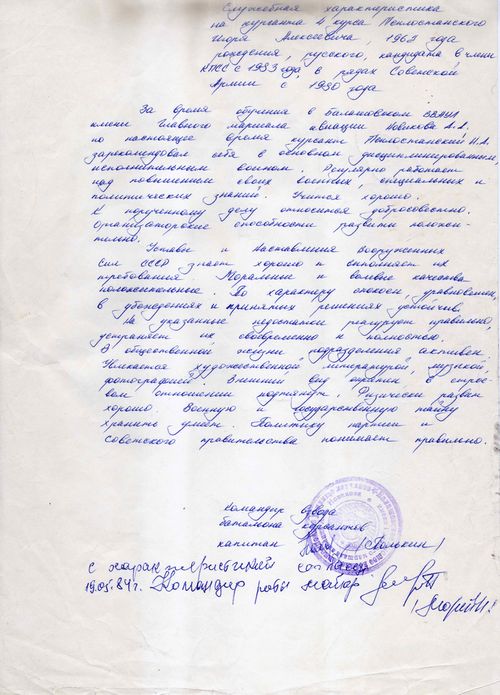 Служебная характеристика
на курсанта 4 курса Теплостанского
Игоря Алексеевича, 1963 года
рождения, русского, кандидата в члены
КПСС с 1983 года, в рядах Советской
Армии с 1980 года
За время обучения в Балашовском ВВАУЛ
имени Главного маршала авиации Новикова А.А.
по настоящее время курсант Теплостанский И.А.
зарекомендовал себя в основном дисциплинированным,
исполнительным воином. Регулярно работает
над повышением своих военных, специальных и
политических знаний. Учится хорошо.
К порученному делу относится добросовестно.
Организаторские способности развиты положи-
тельно.
Уставы и Наставления Вооруженных
Сил СССР знает хорошо и выполняет их
требования. Моральные и волевые качества
положительные. По характеру спокоен, уравновешен,
в убеждениях и принятых решениях устойчив.
На указанные недостатки реагирует правильно,
устраняет их своевременно и полностью.
В общественной жизни подразделения активен.
Увлекается художественной литературой, музыкой,
фотографией. Внешний вид опрятен в строе-
вом отношении подтянут. Физически развит
хорошо. Военную и государственную тайну
хранить умеет. Политику партии и
Советского правительства понимает правильно.
Командир взвода
батальона курсантов
капитан (Полькин)
С характеристикой согласен
19.05.84г. Командир роты майор